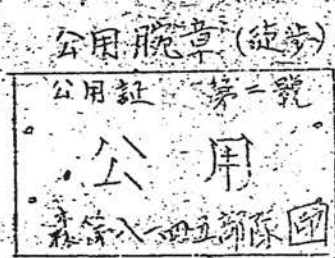 公用腕章(徒歩)
公用証 第二號
公用
森第八一四五部隊印